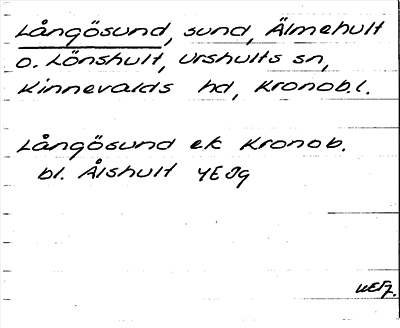 Långösund, sund, Älmehult
o. Lönshult, Urshults sn,
Kinnevalds hd, Kronob.l.
Långösund ek Kronob.
bl. Ålshult 4E 0g